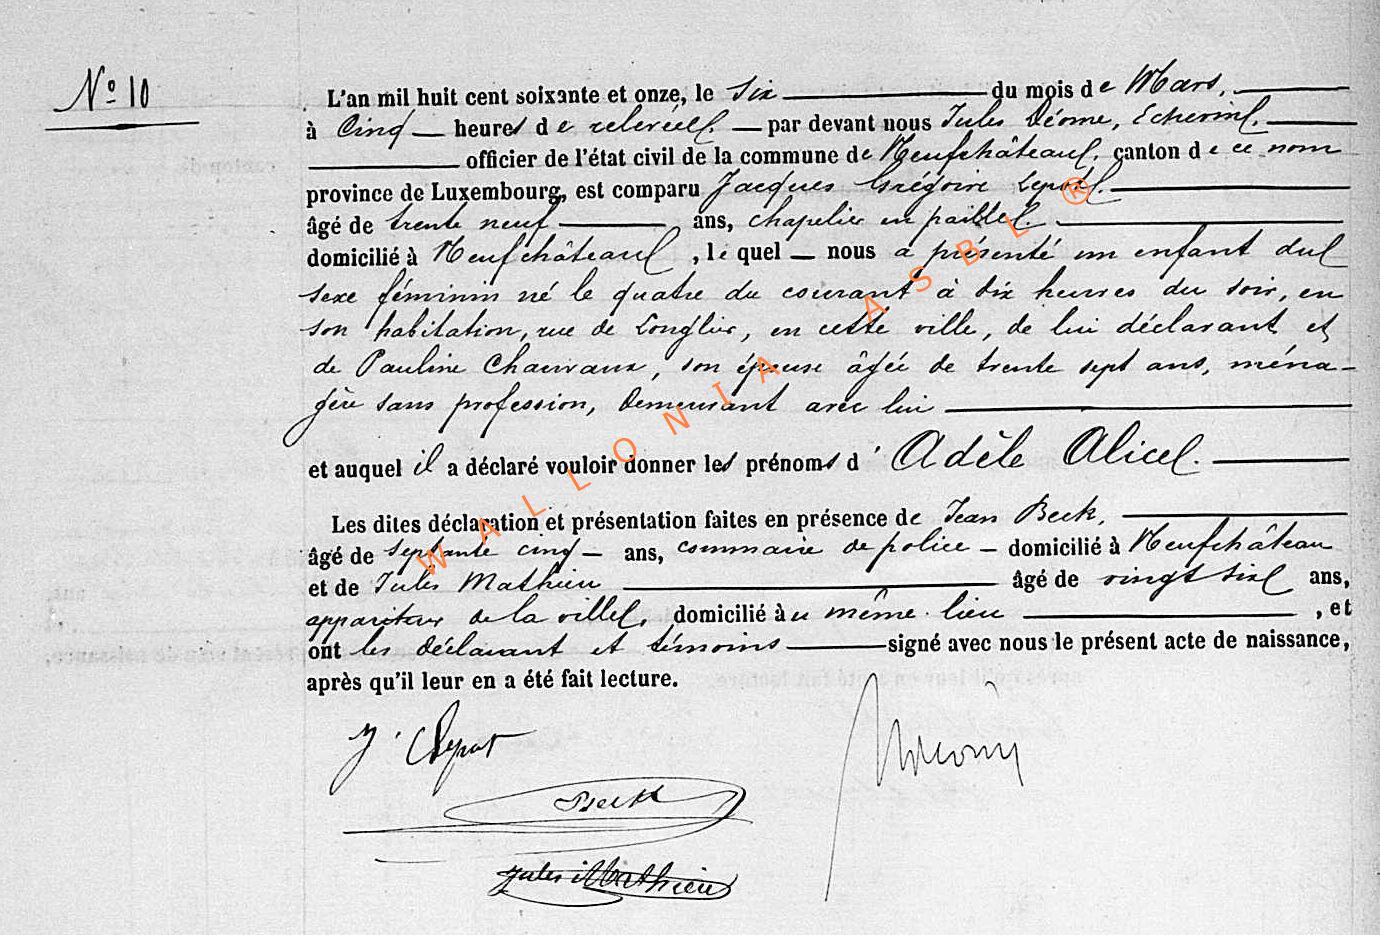 N° 10
L'an mil huit cent soixante et onze, le six du mois de Mars,
à Cinq heures de relevée. par devant nous Jules Déome, Echevin,
officier de l'état civil de la commune de Neufchâteau, canton de ce nom
province de Luxembourg, est comparu Jacques Grégoire
âgé de trente neuf ans, chapelier en paille.
domicilié à Neufchâteau, le quel nous a présenté un enfant du
sexe féminin né le quatre du courant à dix heures du soir, en
son habitation, rue de Longlier, en cette ville, de lui déclarant et
de Pauline Chauvaux, son épouse âgée de trente sept ans, ména-
gère sans profession, demeurant avec lui
et auquel il a déclaré vouloir donner les prénoms d'Adèle Alice.
Les dites déclaration et présentation faites en présence de Jean Beck,
âgé de septante cinq ans, commaire de police domicilié à Neufchâteau
et de Jules Mathieu âgé de vingt six ans,
appariteur de la ville, domicilié au même lieu, et
ont les déclarant et témoins signé avec nous le présent acte de naissance,
après qu'il leur en a été fait lecture.
Beck
Jules Mathieu
WALLONIA ASBL ®